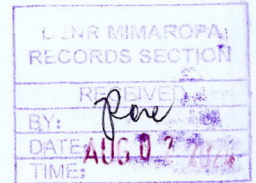 DENR MIMAROPA
RECORDS SECTION
RECEIVED
BY:
DATE: AUG 0
TIME: